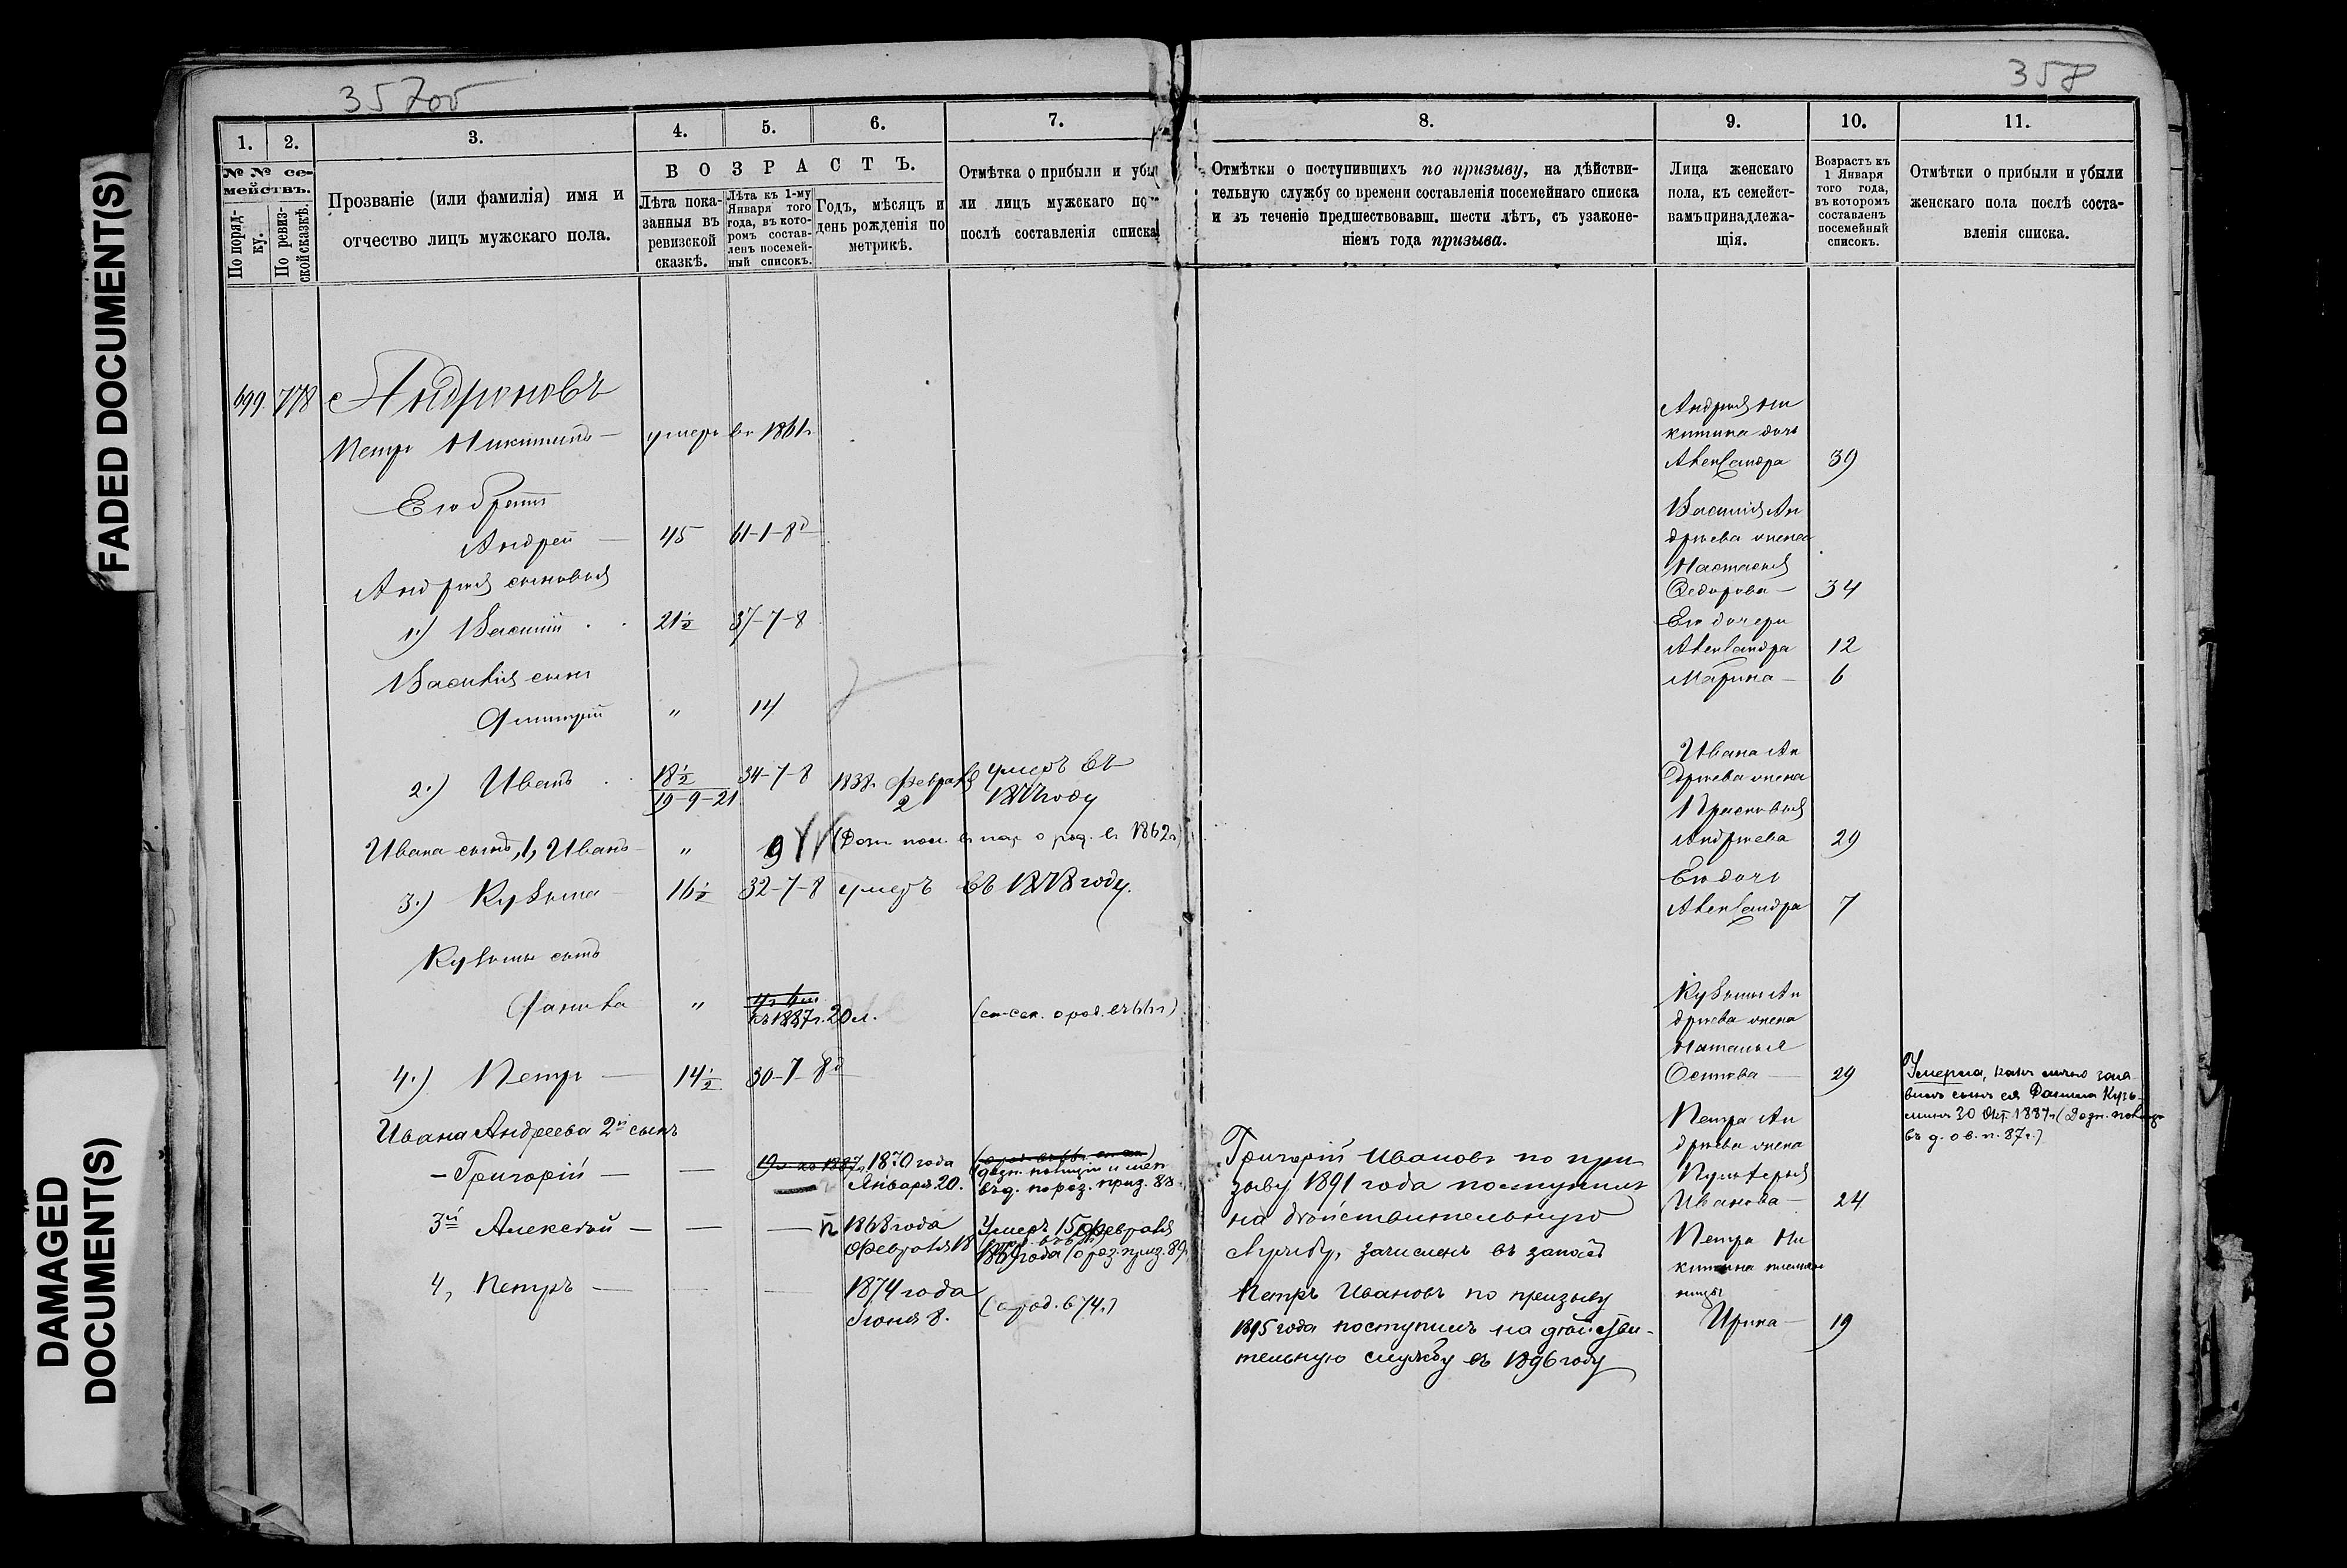 FADED DOCUMENT(S)
DAMAGED
DOCUMENT(S)
357об
358
1.
2.
3.
4.
5.
6.
7.
№ № се-
мействъ.
По поряд-
ку.
По ревиз-
ской сказкѣ.
Прозваніе (или фамилія) имя и
отчество лицъ мужскаго пола.
ВОЗРАСТЪ.
Лѣта пока-
занныя въ
ревизской
сказкѣ.
Лѣта къ 1-му
Января того
года, въ кото-
ромъ состав-
ленъ посемей-
ный списокъ.
Годъ, мѣсяцъ и
день рожденія по
метрикѣ.
Отмѣтка о прибыли и убы
ли лицъ мужскаго по
послѣ составленія списка
699. 778 Андроновъ
Петръ Никитинъ — умеръ въ 1861г.
Его братъ
Андрей — 45 61-1-8
Андрея сыновья
1.) Василій 21½ 37-7-8
Василія сынъ
Дмитрій " 14
2.) Иванъ 18½ 34-7-8 1838г. Февраля умеръ въ
19-9-21 2 1877 году
Ивана сынъ, 1, Иванъ " 9 о род. въ 1862г)
3.) Кузьма 16½ 32-7-8 умеръ въ 1878 году.
Кузьмы сынъ
Данила " къ 1887г. 20 л.
4.) Петръ — 14½ 30-7-8
Ивана Андреева 2й сынъ
— Григорій — — 19 1887г. 1870 года
Января 20. приз. 88
3й Алексѣй — — — 1868 года Умеръ 15 Февраля
Февраля 18 1869 года
4, Петръ — — — 1874 года
Іюня 8. (о род. в 74.)
8.
9.
10.
11.
Отмѣтки о поступившихъ по призыву, на дѣйстви-
тельную службу со времени составленія посемейнаго списка
и въ теченіе предшествовавш. шести лѣтъ, съ узаконе-
ніемъ года призыва.
Лица женскаго
пола, къ семейст-
вамъ принадлежа-
щія.
Возрастъ къ
1 Января
того года,
въ которомъ
составленъ
посемейный
списокъ.
Отмѣтки о прибыли и убыли
женскаго пола послѣ соста-
вленія списка.
Андрея Ни
китина дочь
Александра 39
Василія Ан
дреева жена
Настасья
Федорова — 34
Его дочери
Александра 12
Марина — 6
Ивана Ан
дреева жена
Прасковья
Андреева 29
Его дочь
Александра 7
Кузьмы Ан
дреева жена
Наталья
Осипова — 29
Умерла, какъ лично зая-
вилъ сынъ ея Данила Кузь-
минъ 30 Окт. 1887г.
въ д. о в. п. 87г.)
Петра Ан
дреева жена
Пульхерья
Иванова — 24
Петра Ни
китина племян
ница
Ирина — 19
Григорій Ивановъ по при
зыву 1891 года поступилъ
на дѣйствительную
службу, зачисленъ въ запасъ
Петръ Ивановъ по призыву
1895 года поступилъ на дѣйстви-
тельную службу въ 1896 году